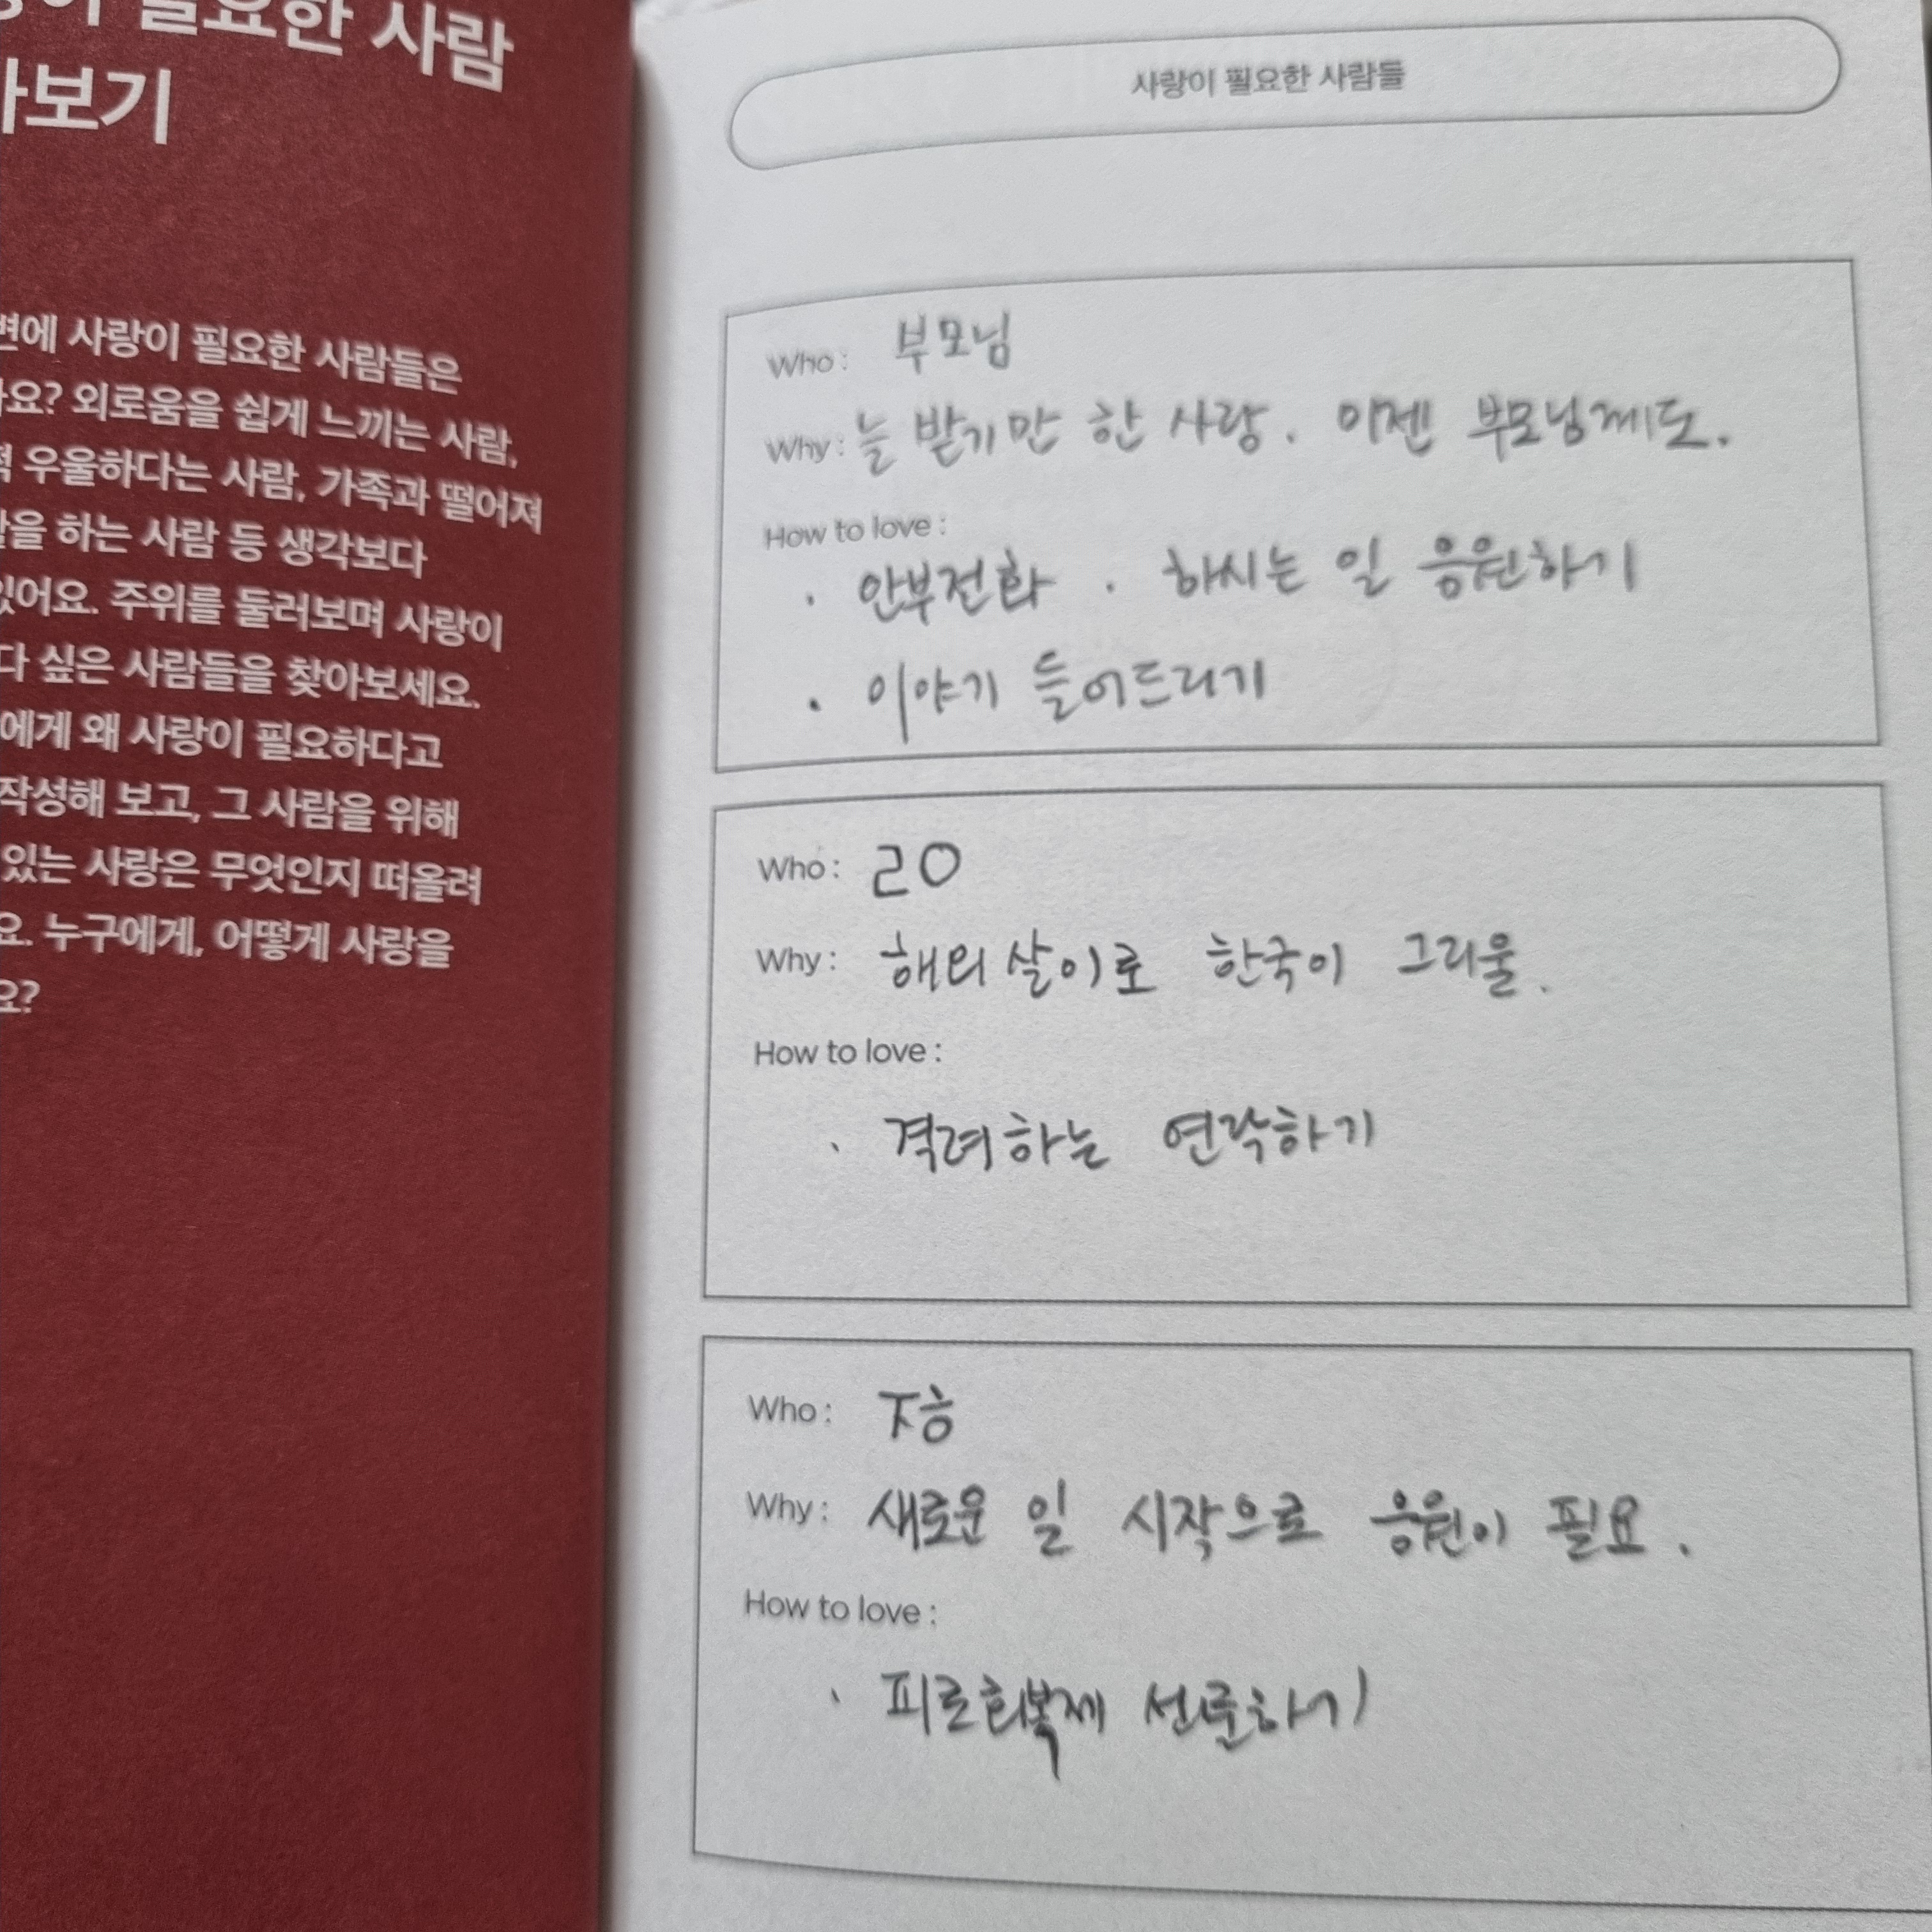 필요한 사람
아보기
변에 사랑이 필요한 사람들은
요? 외로움을 쉽게 느끼는 사람,
우울하다는 사람, 가족과 떨어져
을 하는 사람 등 생각보다
있어요. 주위를 둘러보며 사랑이
다 싶은 사람들을 찾아보세요.
에게 왜 사랑이 필요하다고
작성해 보고, 그 사람을 위해
있는 사랑은 무엇인지 떠올려
요. 누구에게, 어떻게 사랑을
요?
사랑이 필요한 사람들
Who : 부모님
Why : 늘 받기만 한 사랑. 이젠 부모님께도.
How to love :
· 안부전화 · 하시는 일 응원하기
· 이야기 들어드리기
Who : ㄹㅇ
Why : 해외살이로 한국이 그리울.
How to love :
· 격려하는 연락하기
Who : ㅈㅎ
Why : 새로운 일 시작으로 응원이 필요.
How to love :
· 피로회복제 선물하기